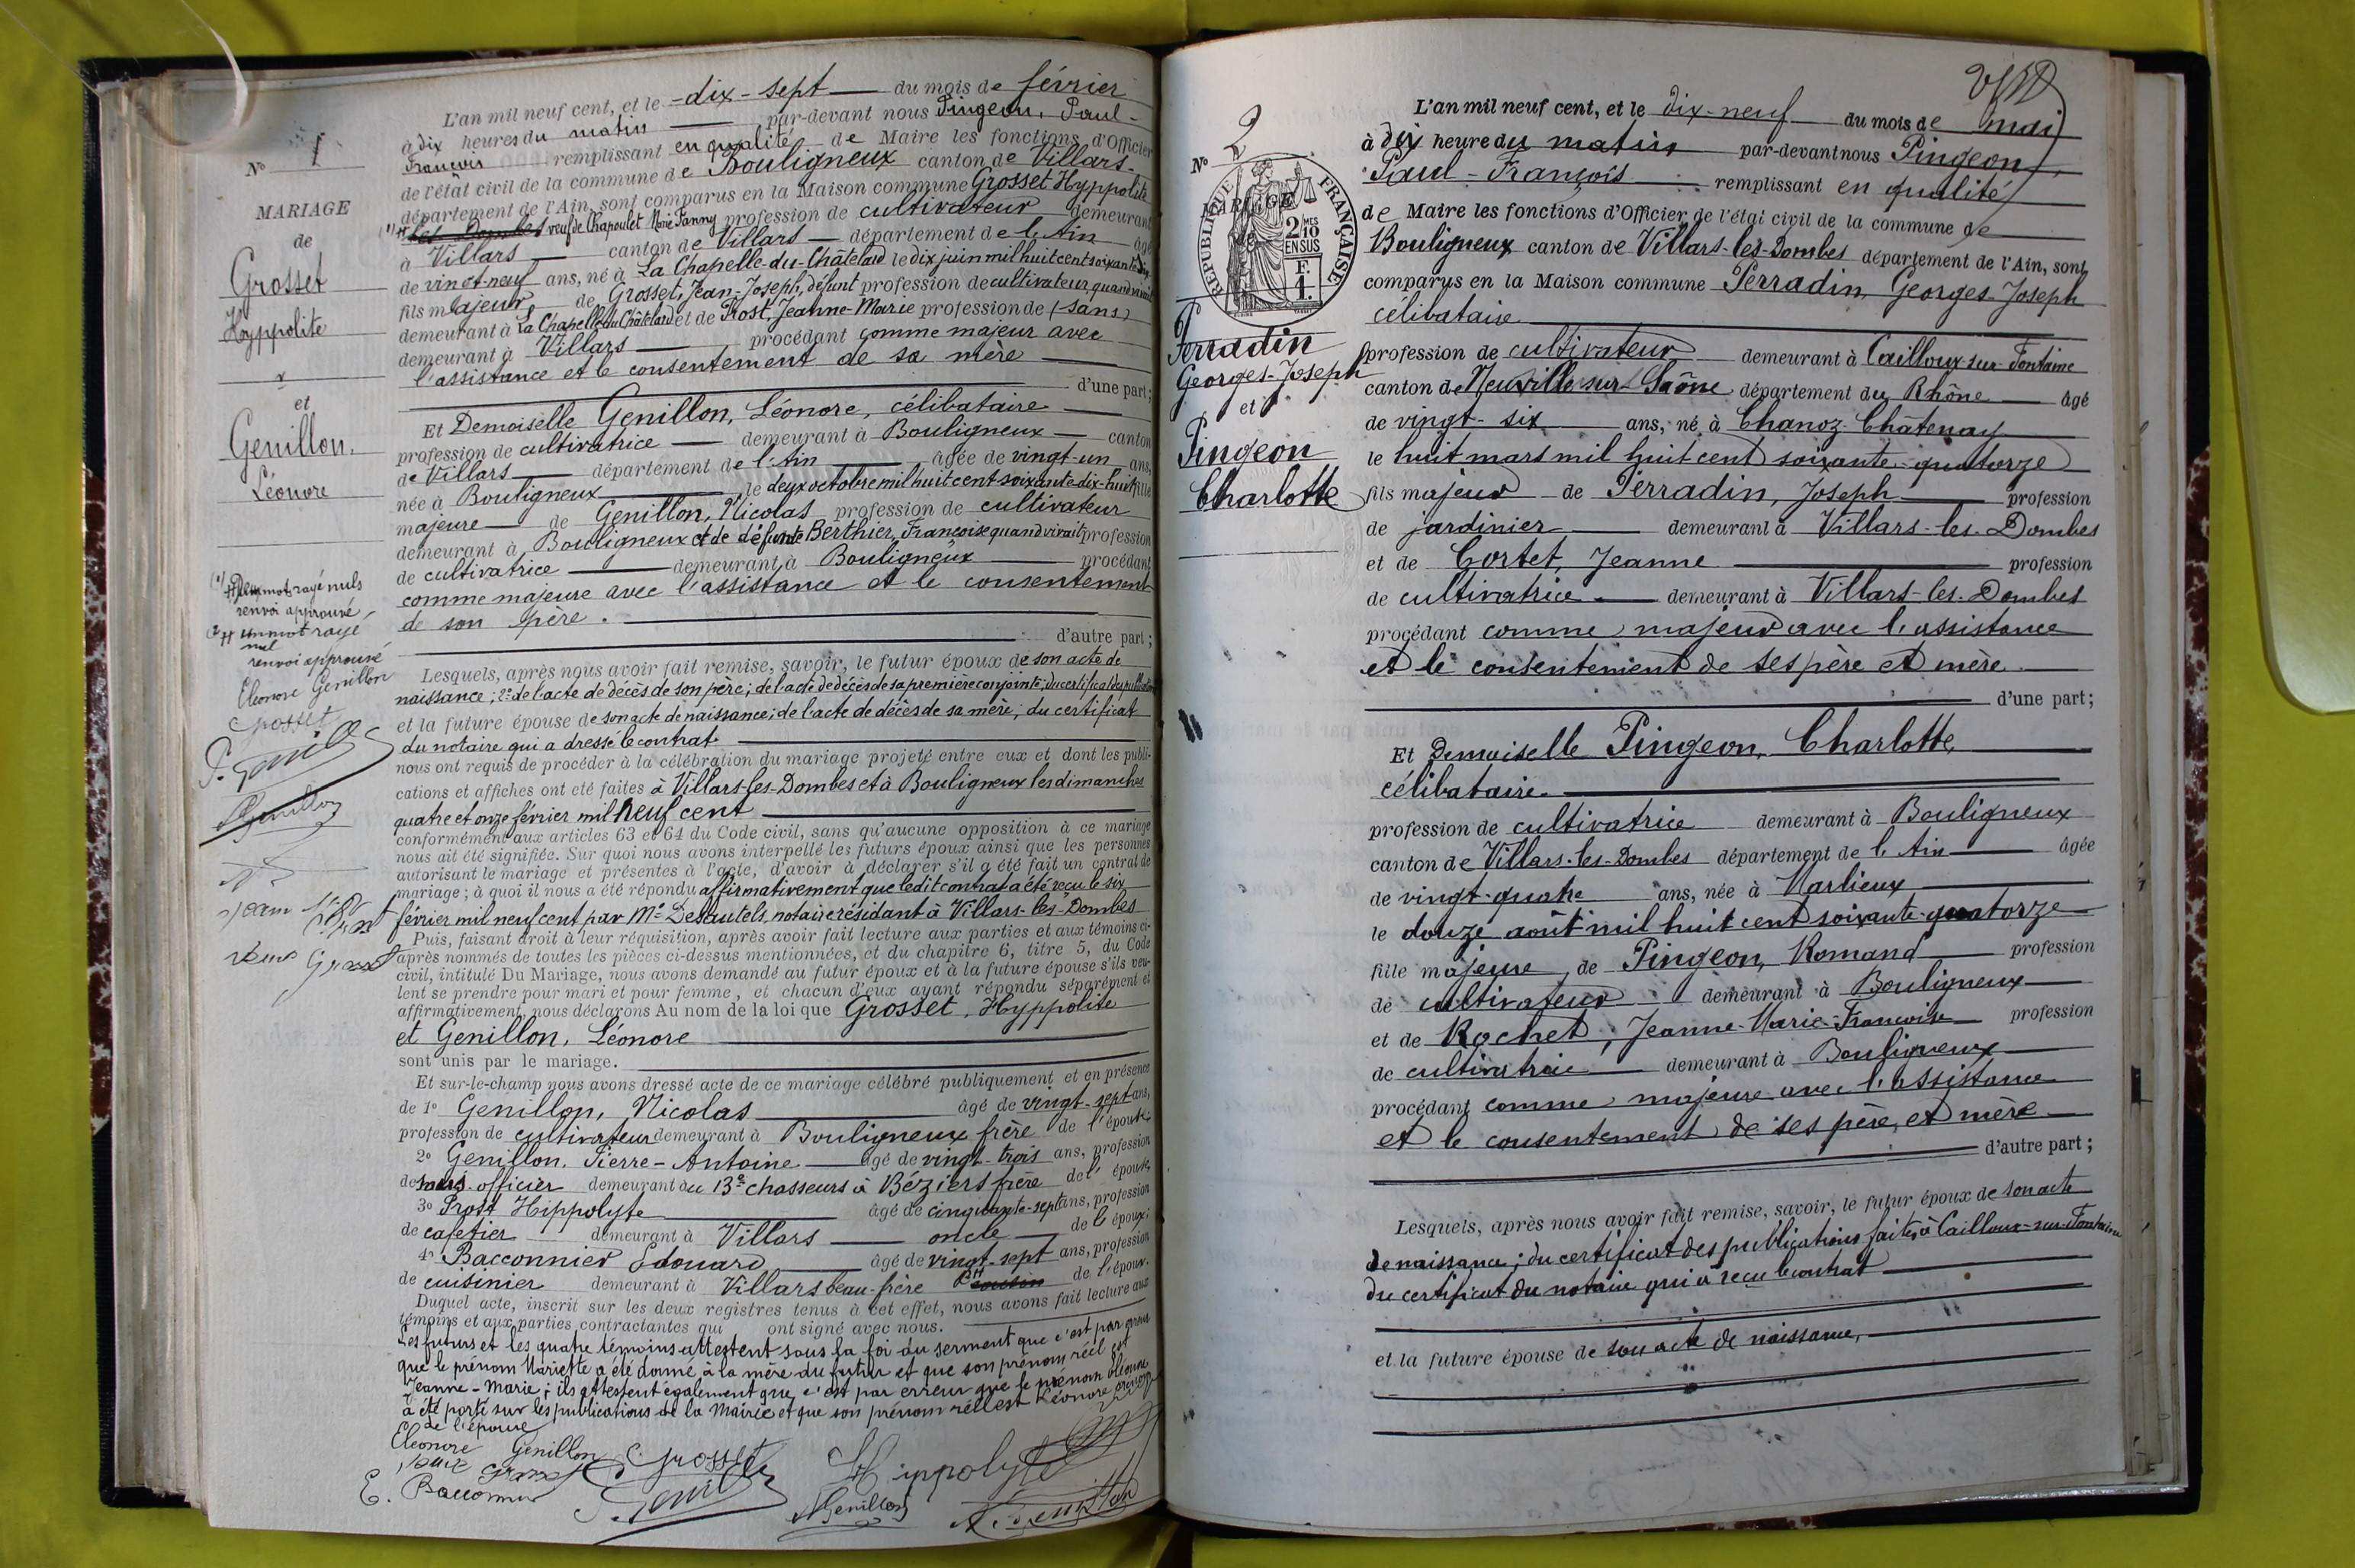 N° 1
MARIAGE
de
Grosset
Hyppolite
et
Genillon,
Léonore
L'an mil neuf cent, et le dix-sept du mois de février
à dix heures du matin par-devant nous Pingeon, Paul-
François remplissant en qualité de Maire les fonctions d'Officier
de l'état civil de la commune de Bouligneux canton de Villars-
département de l'Ain, sont comparus en la Maison commune Grosset Hyppolite
les Dombes veuf de Chapoulet Marie Fanny profession de cultivateur demeurant
à Villars canton de Villars département de l'Ain âgé
de vingt-neuf ans, né à La Chapelle-du-Châtelard le dix juin mil huit cent soixante-dix
fils majeur de Grosset, Jean-Joseph, défunt profession de cultivateur, quand vivait
demeurant à La Chapelle du Châtelard et de Prost, Jeanne-Marie profession de (sans)
demeurant à Villars procédant comme majeur avec
l'assistance et le consentement de sa mère
d'une part;
Et Demoiselle Genillon, Léonore, célibataire
profession de cultivatrice demeurant à Bouligneux canton
de Villars département de l'Ain âgée de vingt-un ans,
née à Bouligneux le deux octobre mil huit cent soixante-dix-huit fille
majeure de Genillon, Nicolas profession de cultivateur
demeurant à Bouligneux et de défunte Berthier, Françoise quand vivait profession
de cultivatrice demeurant à Bouligneux procédant
comme majeure avec l'assistance et le consentement
de son père.
d'autre part;
Lesquels, après nous avoir fait remise, savoir, le futur époux de son acte de
naissance; 2° de l'acte de décès de son père; de l'acte de décès de sa première conjointe; du certificat de publication
et la future épouse de son acte de naissance; de l'acte de décès de sa mère; du certificat
du notaire qui a dressé le contrat
nous ont requis de procéder à la célébration du mariage projeté entre eux et dont les publi-
cations et affiches ont été faites à Villars-les-Dombes et à Bouligneux les dimanches
quatre et onze février mil neuf cent
conformément aux articles 63 et 64 du Code civil, sans qu'aucune opposition à ce mariage
nous ait été signifiée. Sur quoi nous avons interpellé les futurs époux ainsi que les personnes
autorisant le mariage et présentes à l'acte, d'avoir à déclarer s'il a été fait un contrat de
mariage; à quoi il nous a été répondu affirmativement que ledit contrat a été reçu le six
février mil neuf cent par Me Desautels, notaire résidant à Villars-les-Dombes
Puis, faisant droit à leur réquisition, après avoir fait lecture aux parties et aux témoins ci-
après nommés de toutes les pièces ci-dessus mentionnées, et du chapitre 6, titre 5, du Code
civil, intitulé Du Mariage, nous avons demandé au futur époux et à la future épouse s'ils veu-
lent se prendre pour mari et pour femme, et chacun d'eux ayant répondu séparément et
affirmativement, nous déclarons Au nom de la loi que Grosset, Hyppolite
et Genillon, Léonore
sont unis par le mariage.
Et sur-le-champ nous avons dressé acte de ce mariage célébré publiquement et en présence
de 1° Genillon, Nicolas âgé de vingt-sept ans,
profession de cultivateur demeurant à Bouligneux frère de l'épouse
2° Genillon, Pierre-Antoine âgé de vingt-trois ans, profession
de sous-officier demeurant au 13e chasseurs à Béziers frère de l'épouse
3° Prost Hippolyte âgé de cinquante-sept ans, profession
de cafetier demeurant à Villars oncle de l'époux;
4° Bacconnier Edouard âgé de vingt-sept ans, profession
de cuisinier demeurant à Villars beau-frère cousin de l'époux.
Duquel acte, inscrit sur les deux registres tenus à cet effet, nous avons fait lecture aux
témoins et aux parties contractantes qui ont signé avec nous.
Les futurs et les quatre témoins attestent sous la foi du serment que c'est par erreur
que le prénom Mariette a été donné à la mère du futur et que son prénom réel est
Jeanne-Marie; ils attestent également que c'est par erreur que le prénom
a été porté sur les publications de la Mairie et que son prénom réel est Léonore
de l'épouse
Eléonore Genillon Grosset
Hippolyte
E. Bacconnier Genillon
(1) Deux mots rayé nuls
renvoi approuvé
un mot rayé
nul
renvoi approuvé
Eléonore Genillon
Grosset
N° 2
MARIAGE
RÉPUBLIQUE FRANÇAISE
2/10 MES
EN SUS
F.
1.
Perradin
Georges-Joseph
et
Pingeon
Charlotte
L'an mil neuf cent, et le dix-neuf du mois de mai
à dix heure du matin par-devant nous Pingeon,
Paul-François remplissant en qualité
de Maire les fonctions d'Officier de l'état civil de la commune de
Bouligneux canton de Villars-les-Dombes département de l'Ain, sont
comparus en la Maison commune Perradin, Georges-Joseph
célibataire
profession de cultivateur demeurant à Cailloux-sur-Fontaine
canton de Neuville-sur-Saône département du Rhône âgé
de vingt-six ans, né à Chanoz-Châtenay
le huit mars mil huit cent soixante-quatorze
fils majeur de Perradin, Joseph profession
de jardinier demeurant à Villars-les-Dombes
et de Cortet, Jeanne profession
de cultivatrice demeurant à Villars-les-Dombes
procédant comme majeur avec l'assistance
et le consentement de ses père et mère
d'une part;
Et Demoiselle Pingeon, Charlotte,
célibataire
profession de cultivatrice demeurant à Bouligneux
canton de Villars-les-Dombes département de l'Ain âgée
de vingt-quatre ans, née à Marlieux
le douze août mil huit cent soixante-quatorze
fille majeure, de Pingeon, Romand profession
de cultivateur demeurant à Bouligneux
et de Rochet, Jeanne-Marie-Françoise profession
de cultivatrice demeurant à Bouligneux
procédant comme majeure avec l'assistance
et le consentement de ses père et mère
d'autre part;
Lesquels, après nous avoir fait remise, savoir, le futur époux de son acte
de naissance; du certificat des publications faites à Cailloux-sur-Fontaine
du certificat du notaire qui a reçu le contrat
et la future épouse de son acte de naissance,